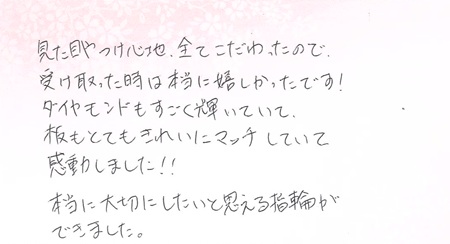 見た目やつけ心地、全てこだわったので、
受け取った時は本当に嬉しかったです!
ダイヤモンドもすごく輝いていて、
板もとてもきれいにマッチしていて
感動しました!!
本当に大切にしたいと思える指輪が
できました。